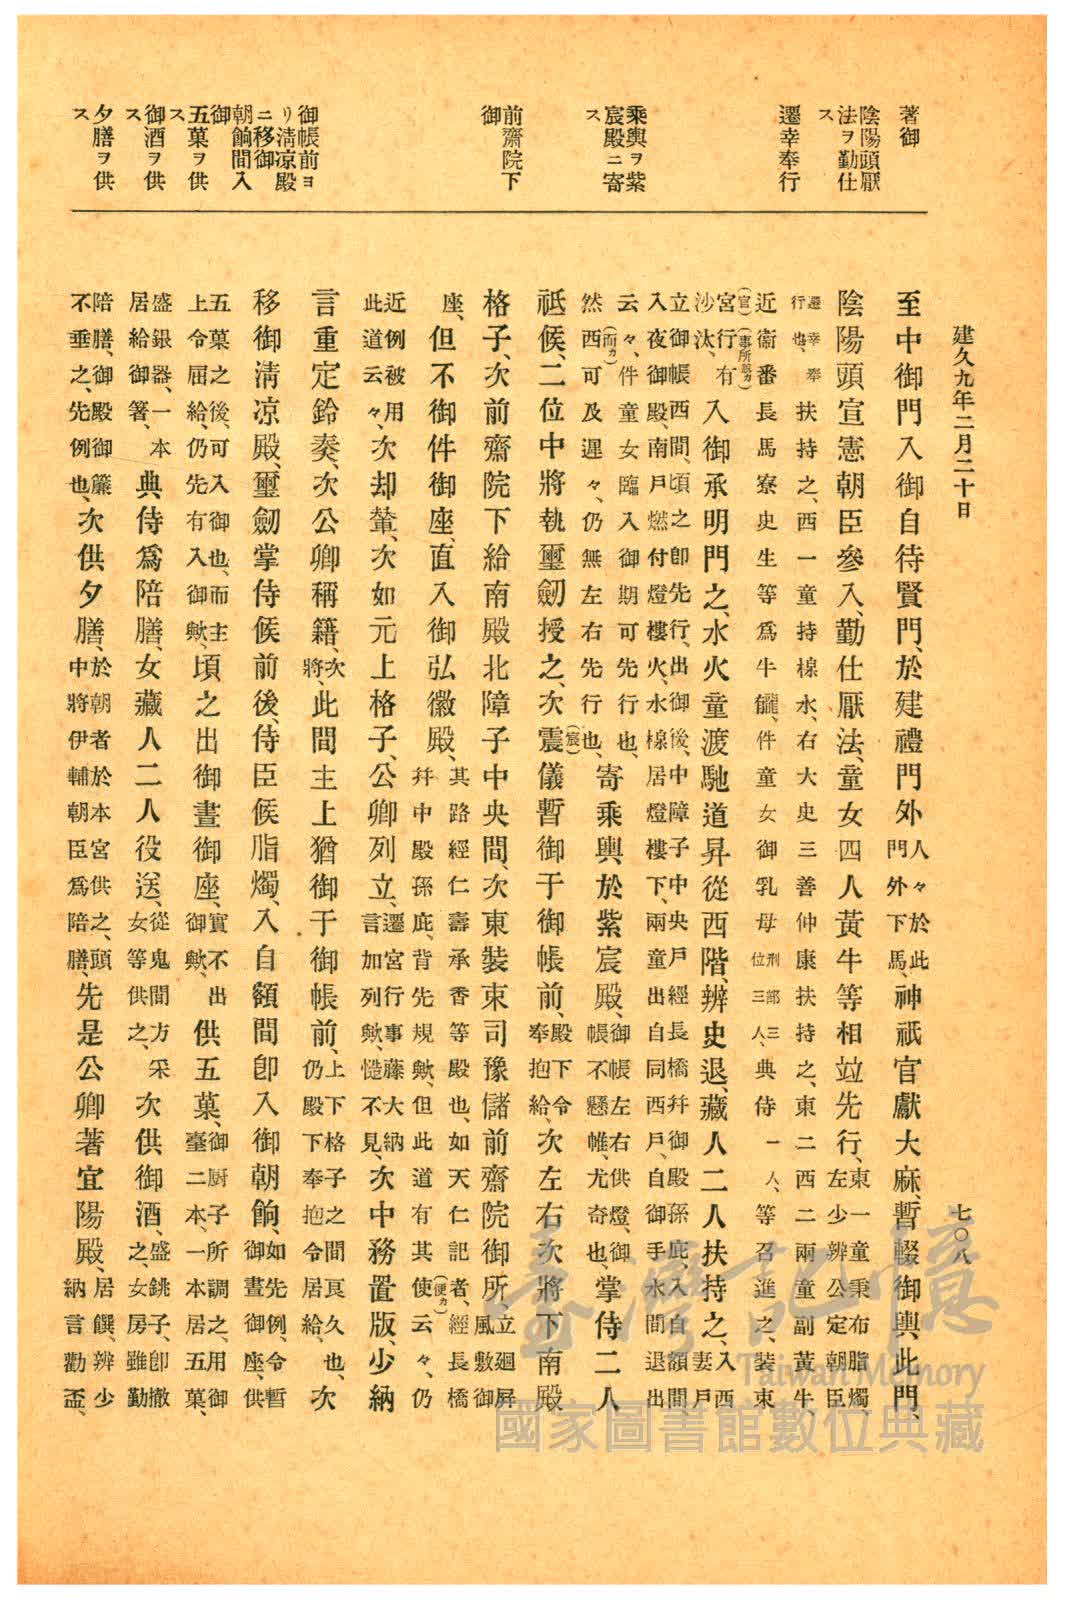 著御
陰陽頭厭
法ヲ勤仕
ス
遷幸奉行
乘輿ヲ紫
宸殿ニ寄
ス
前齋院下
御
御帳前ヨ
リ淸凉殿
ニ移御
朝餉間入
御
五菓ヲ供
ス
御酒ヲ供
ス
夕膳ヲ供
ス
建久九年二月二十日　七〇八
至中御門入御自待賢門、於建禮門外人々於此門外下馬、神祇官獻大麻、暫輟御輿、此門、
陰陽頭宣憲朝臣參入、勤仕厭法、童女四人黃牛等相竝先行、東一童秉布脂燭左少辨公定朝臣
遷幸奉行也、扶持之、西一童持楾水、右大史三善仲康扶持之、東二西二兩童副黃牛、
近衞番長馬寮史生等爲牛龓、件童女御乳母刑部三位三人、典侍一人、等召進之、裝束
宮(官)行(事所歟カ)有沙汰、入御承明門之、水火童渡馳道昇從西階、辨史退、藏人二人扶持之、入西妻戶
立御帳西間、頃之卽先行、出御後、中障子中央戶經長橋幷御殿孫庇、入自額間
入夜御殿、南戶燃付燈樓火、水楾居燈樓下、兩童出自同西戶、自御手水間退出
云々、件童女臨入御期可先行也、
然西(而カ)可及遲々、仍無左右先行也、寄乘輿、於紫宸殿、御帳左右供燈、御帳不懸帷、尤奇也、掌侍二人
祗候、二位中將執璽劒授之、次震(宸)儀暫御于御帳前、殿下令奉抱給、次左右次將下南殿
格子、次前齋院下給南殿北障子中央間、次東裝束司豫儲前齋院御所、立廻屛風敷御
座、但不御件御座、直入御弘徽殿、其路經仁壽承香等殿也、如天仁記者、經長橋幷中殿孫庇、背先規歟、但此道有其使(便カ)云々、仍
近例被用此道云々、次却輦、次如元上格子、公卿列立、遷宮行事藤大納言加列歟、慥不見、次中務置版、少納
言重定鈴奏、次公卿稱籍、次將、此間主上猶御于御帳前、上下格子之間良久也、仍殿下奉抱令居給、次
移御淸凉殿、璽劒掌侍候前後、侍臣候脂燭、入自額間卽入御朝餉、如先例、令暫御晝御座、供
五菓之後、可入御也、而主上令屆給、仍先有入御歟、頃之出御晝御座、實不出御歟、供五菓、御厨子所調之、用御臺二本、一本居五菓、
盛銀器、一本居給御箸、典侍爲陪膳、女藏人二人役送、從鬼間方釆女等供之、次供御酒、盛銚子、卽撤之、女房雖勤
陪膳、御殿御簾不垂之、先例也、次供夕膳、於朝者於本宮供之、頭中將伊輔朝臣爲陪膳、先是公卿著宜陽殿、居饌、辨少納言勸盃、
臺灣記憶
Taiwan Memory
國家圖書館數位典藏